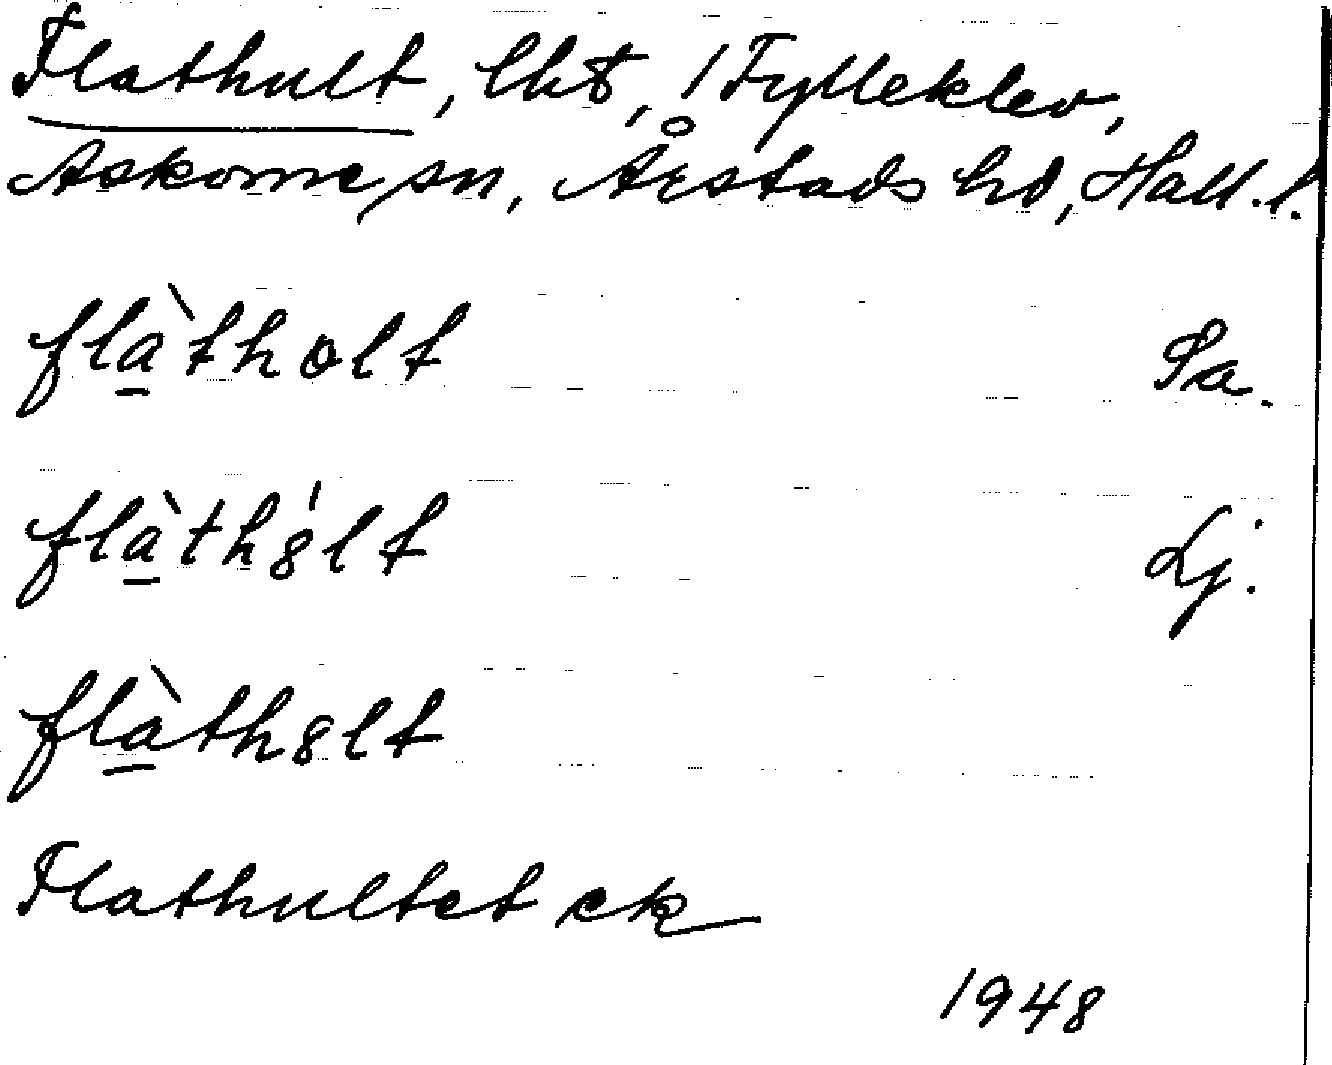 Flathult, lht, 1 Fylleklev,
Askome sn, Årstads hd, Hall.l.
flà̱tholt Sa.
flà̱th8́lt Lj.
flà̱th8lt
Flathultet ek
1948